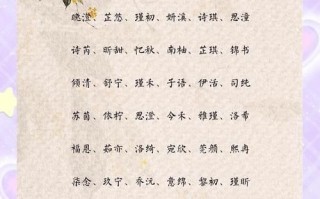 晚澄、芷悠、瑾初、妍溪、诗琪、思潼
诗芮、昕甜、忆秋、南柚、芷琪、锦书
倾清、舒宁、瑾禾、于语、伊活、司纯
苏茵、依柠、思澄、今禾、雅瑾、洛希
福恩、茹亦、洛绮、宛欣、莞颜、熙冉
柒念、玖宁、乔沅、意绵、黎初、瑾昕